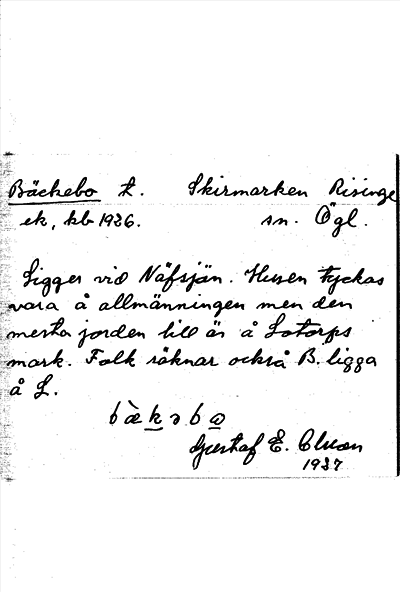 Bäckebo t. Skirmarken Risinge
ek, kb 1926. sn. Ögl.
Ligger vid Näfsjön. Husen tyckas
vara å allmänningen men den
mesta jorden till är å Lotorps
mark. Folk räknar också B. ligga
å L.
bæ̀kəbω
Gustaf E. Olsson
1927